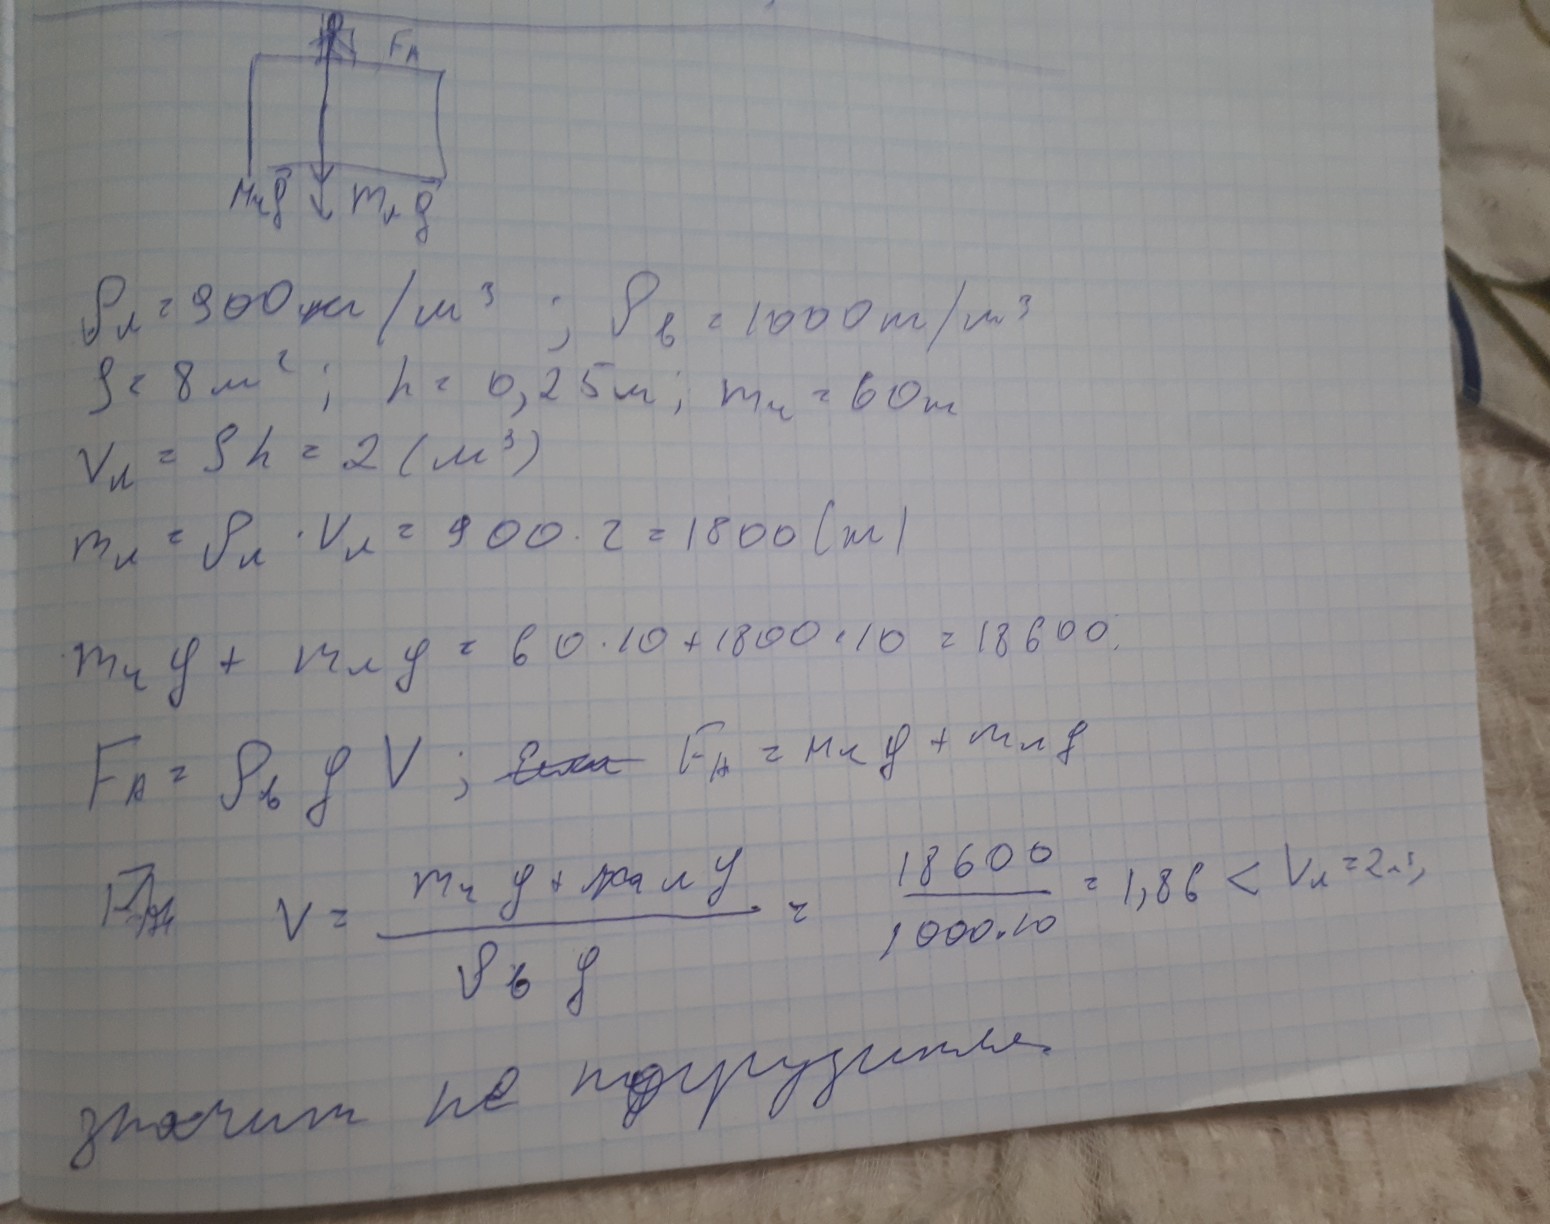 F_A
m_ч g⃗ m_л g⃗
ρ_л = 900 кг/м³ ; ρ_в = 1000 т/м³
S = 8 м² ; h = 0,25 м; m_ч = 60 т
V_л = Sh = 2 (м³)
m_л = ρ_л · V_л = 900 · 2 = 1800 (т)
m_ч g + m_л g = 60·10 + 1800·10 = 18600.
F_A = ρ_в g V ; F_A = m_ч g + m_л g
V = (m_ч g + m_л g) / (ρ_в g) = 18600 / (1000·10) = 1,86 < V_л = 2 м³,
значит не погрузиться.